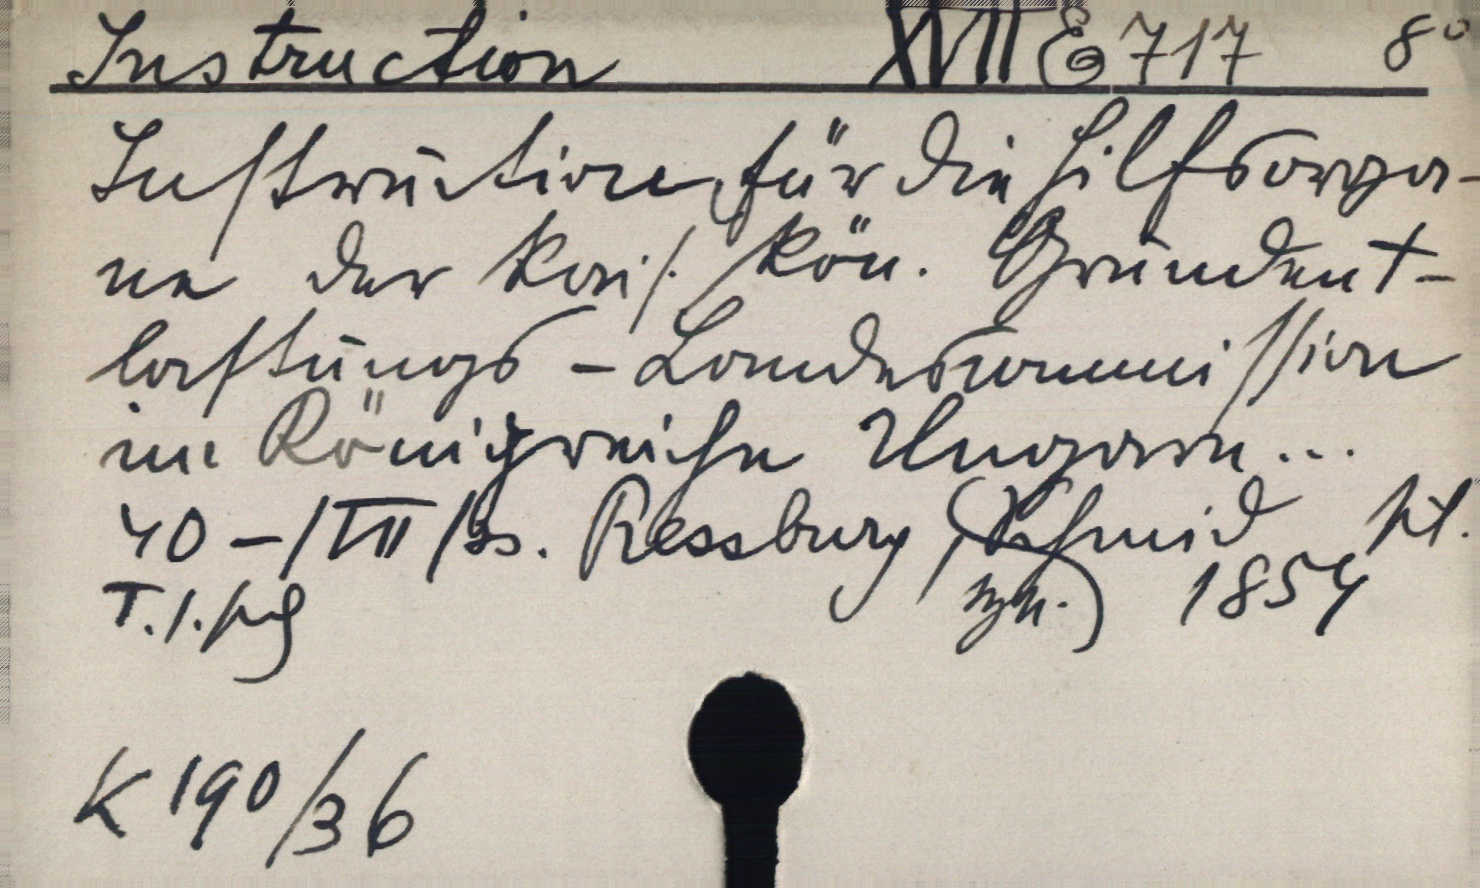 Instruction XVII E 717 8°
Instruction für die Hilfsorga-
ne der kais. kön. Grundent-
lastungs-Landescommission
im Königreiche Ungarn...
40 - / III / Bs. Pressburg, (Schmid
1854
T. 1. pg
K 190/36